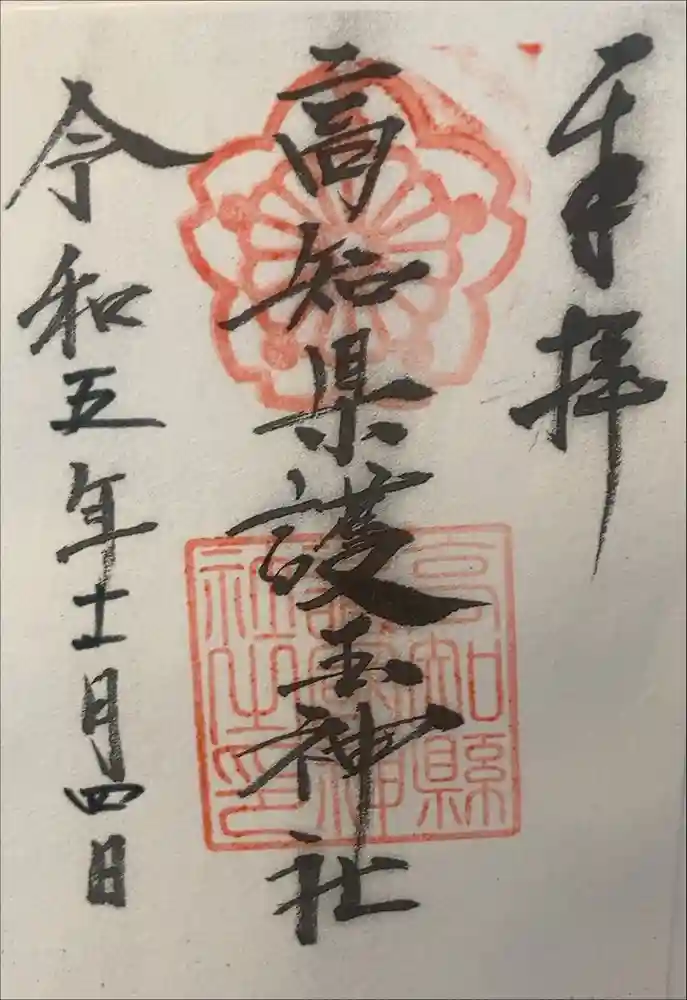 奉拝
高知県護国神社
令和五年十一月四日
高知縣
護國神
社之印